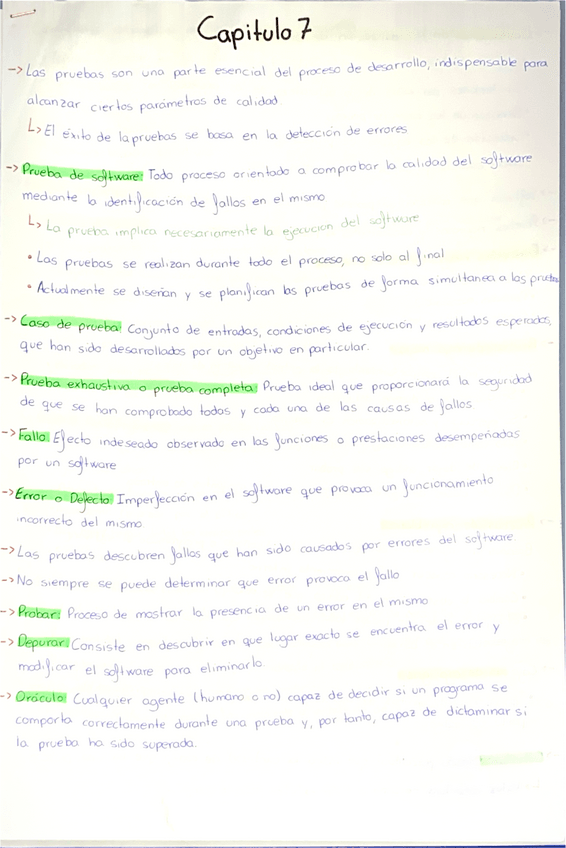 Capitulo 7
-> Las pruebas son una parte esencial del proceso de desarrollo, indispensable para
alcanzar ciertos parámetros de calidad.
↳ El éxito de la pruebas se basa en la detección de errores
-> Prueba de software: Todo proceso orientado a comprobar la calidad del software
mediante la identificación de fallos en el mismo
↳ La prueba implica necesariamente la ejecución del software
• Las pruebas se realizan durante todo el proceso, no solo al final
• Actualmente se diseñan y se planifican las pruebas de forma simultanea a las
-> Caso de prueba: Conjunto de entradas, condiciones de ejecución y resultados esperados,
que han sido desarrollados por un objetivo en particular.
-> Prueba exhaustiva o prueba completa: Prueba ideal que proporcionará la seguridad
de que se han comprobado todas y cada una de las causas de fallos
-> Fallo: Efecto indeseado observado en las funciones o prestaciones desempeñadas
por un software
-> Error o Defecto: Imperfección en el software que provoca un funcionamiento
incorrecto del mismo
-> Las pruebas descubren fallos que han sido causados por errores del software.
-> No siempre se puede determinar que error provoca el fallo
-> Probar: Proceso de mostrar la presencia de un error en el mismo
-> Depurar: Consiste en descubrir en que lugar exacto se encuentra el error y
modificar el software para eliminarlo.
-> Oráculo: Cualquier agente (humano o no) capaz de decidir si un programa se
comporta correctamente durante una prueba y, por tanto, capaz de dictaminar si
la prueba ha sido superada.